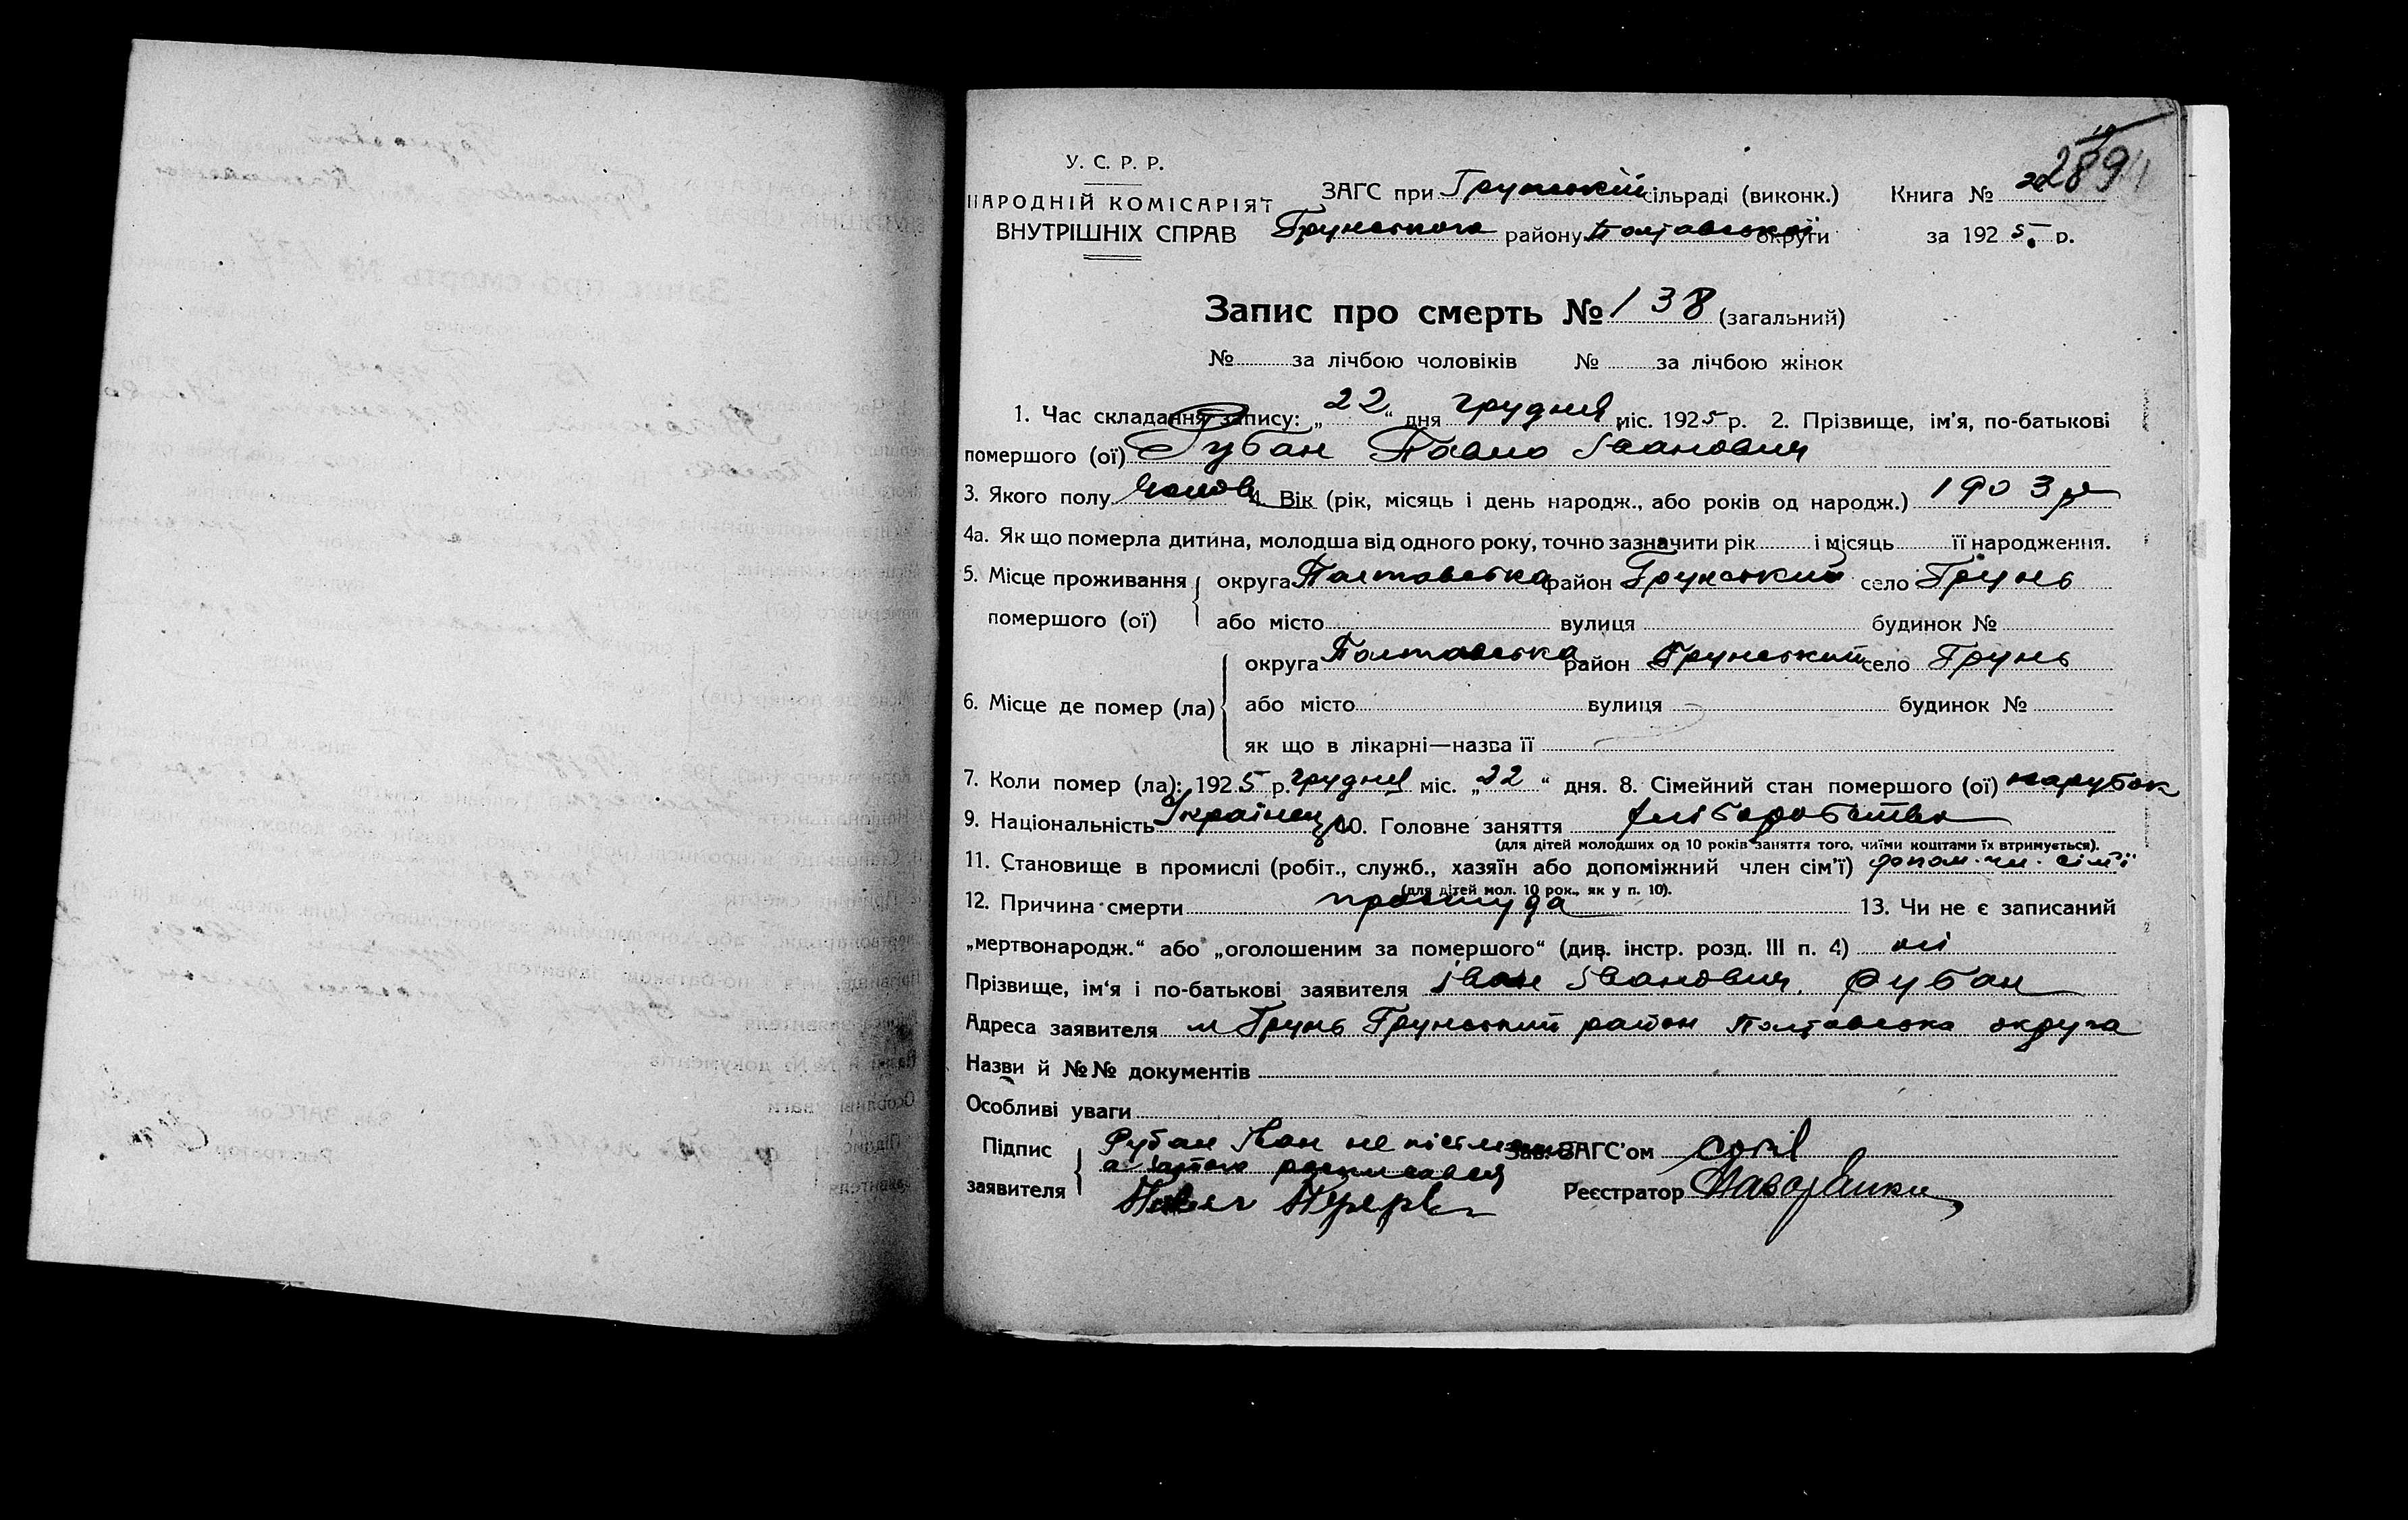 289
У. С. Р. Р.
НАРОДНІЙ КОМІСАРІЯТ
ВНУТРІШНІХ СПРАВ
ЗАГС при Грунській сільраді (виконк.) Книга №
Грунського району Полтавської округи за 1925 р.
Запис про смерть № 138 (загальний)
№ за лічбою чоловіків № за лічбою жінок
1. Час складання запису: „22“ дня грудня міс. 1925 р. 2. Прізвище, ім'я, по-батькові
помершого (ої) Рубан Павло Іванович
3. Якого полу чолов 4. Вік (рік, місяць і день народж., або років од народж.) 1903 р
4а. Як що померла дитина, молодша від одного року, точно зазначити рік і місяць її народження.
5. Місце проживання помершого (ої) округа Полтавська район Грунський село Грунь
або місто вулиця будинок №
6. Місце де помер (ла) округа Полтавська район Грунський село Грунь
або місто вулиця будинок №
як що в лікарні—назва її
7. Коли помер (ла): 1925 р. грудня міс. „22“ дня. 8. Сімейний стан помершого (ої) парубок
9. Національність Українець 10. Головне заняття хліборобство
(для дітей молодших од 10 років заняття того, чиїми коштами їх втримується).
11. Становище в промислі (робіт., служб., хазяїн або допоміжний член сім'ї) допом. чл. сім'ї
(для дітей мол. 10 рок., як у п. 10).
12. Причина смерти простуда 13. Чи не є записаний
„мертвонародж.“ або „оголошеним за помершого“ (див. інстр. розд. III п. 4) ні
Прізвище, ім'я і по-батькові заявителя Іван Іванович Рубан
Адреса заявителя м Грунь Грунський район Полтавська округа
Назви й №№ документів
Особливі уваги
Підпис заявителя Рубан Іван не письмен Зав. ЗАГС'ом
а за його росписався
Реєстратор